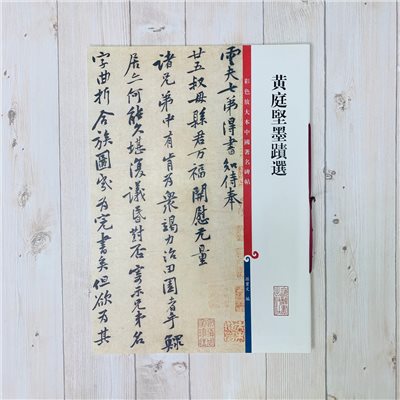 黄庭堅墨蹟選
彩色放大本中國著名碑帖
孫寶文 編
雲夫七弟得書知侍奉
廿五叔母縣君万福開慰无量
諸兄弟中有肯為衆竭力治田園者乎鰥
居亦何能久堪復議昏對否寄示兄弟名
字曲折合族圖家為完書矣但欲為其